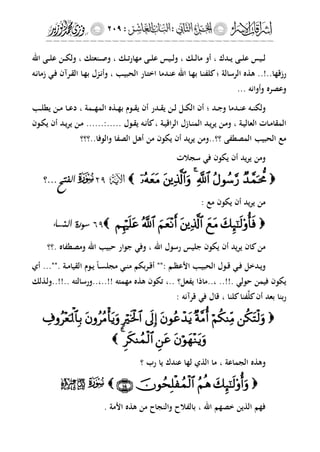 المجلس العاشر : ٢٠٩
ليس على يدك ، أو مالك ، وليس على مهارتك ، وصنعتك ، ولكن على الله
رزقها..!.. هذه الرسالة ؛ كلفنا بها الله عندما اختار الحبيب ، وأنزل بها القرآن في زمانه
وعصره وأوانه ...
ولكنه عندما وجد ؛ أن الكل لن يقدر أن يقوم بهذه المهمة ، دعا من يطلب
المقامات العالية ، ومن يريد المنازل الراقية ، كأنه يقول .....:...... من يريد أن يكون
مع الحبيب المصطفى ؟؟..ومن يريد أن يكون من أهل الصفا والوفا..؟؟؟
ومن يريد أن يكون في سجلات
﴿ مُّحَمَّدٌ رَّسُولُ ٱللَّهِ ۚ وَٱلَّذِينَ مَعَهُۥٓ ﴾ ٢٩ الفتح ...؟
من يريد أن يكون مع :
﴿ فَأُو۟لَـٰٓئِكَ مَعَ ٱلَّذِينَ أَنْعَمَ ٱللَّهُ عَلَيْهِم ﴾ ٦٩ سورة النساء
من كان يريد أن يكون جليس رسول الله ، وفي جوار حبيب الله ومصطفاه .؟؟
ويدخل في قول الحبيب الأعظم :"" أقربكم مني مجلساً يوم القيامة .""... أي
يكون فيمن حولي ..!!. ،..ماذا يفعل؟ ..، تكون هذه مهمته !!..،..ورسالته ..!!..ولذلك
ربنا بعد أن كلَّفنا كلنا ، قال في قرآنه :
﴿ وَلْتَكُن مِّنكُمْ أُمَّةٌ يَدْعُونَ إِلَى ٱلْخَيْرِ وَيَأْمُرُونَ بِٱلْمَعْرُوفِ
وَيَنْهَوْنَ عَنِ ٱلْمُنكَرِ ۚ ﴾
وهذه الجماعة ، ما الذي لها عندك يا رب ؟
﴿ وَأُو۟لَـٰٓئِكَ هُمُ ٱلْمُفْلِحُونَ ﴾
فهم الذين خصهم الله ، بالفلاح والنجاح من هذه الأمة .